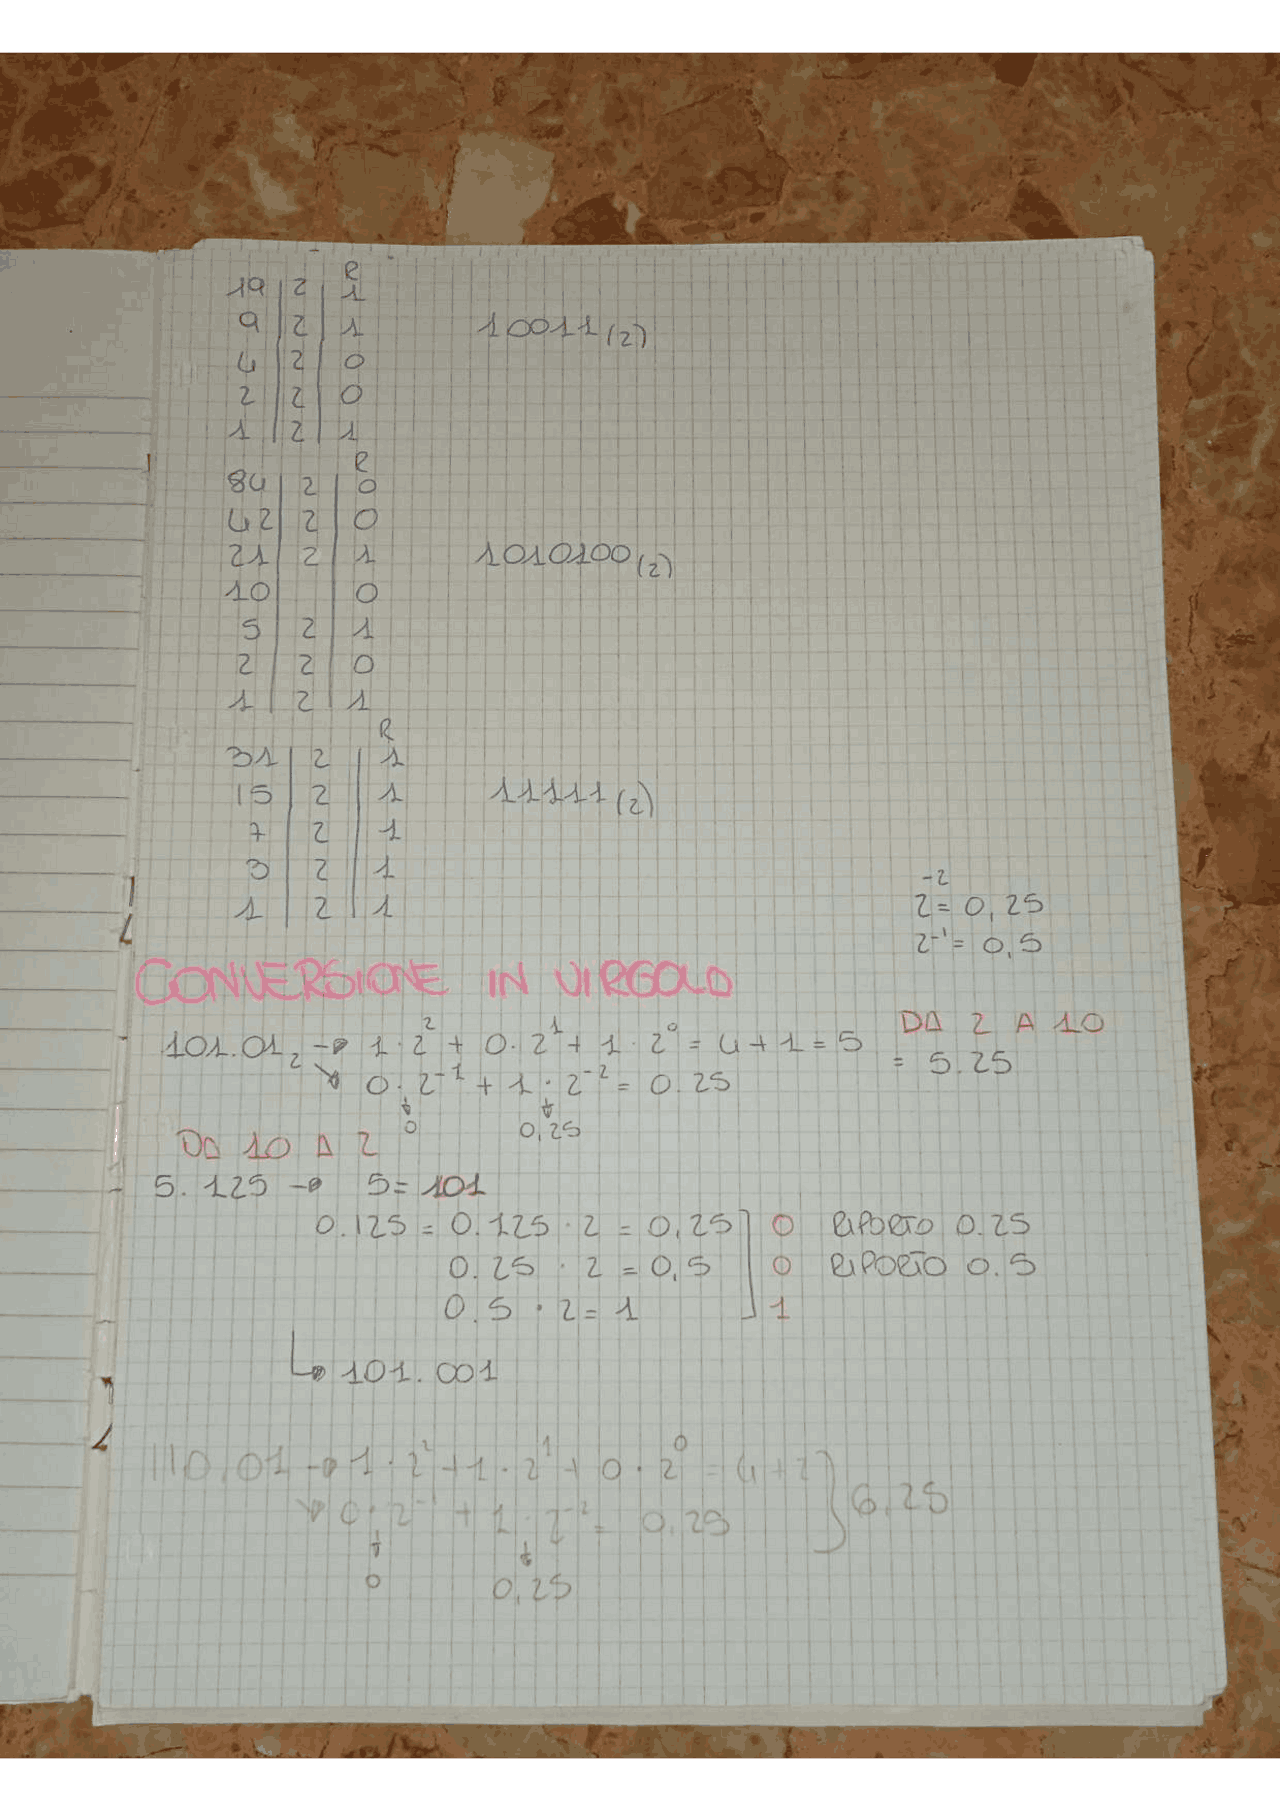 R
19 | 2 | 1
9 | 2 | 1
10011(2)
4 | 2 | 0
2 | 2 | 0
1 | 2 | 1
R
84 | 2 | 0
42 | 2 | 0
21 | 2 | 1
1010100(2)
10 | | 0
5 | 2 | 1
2 | 2 | 0
1 | 2 | 1
R
31 | 2 | 1
15 | 2 | 1
11111(2)
7 | 2 | 1
3 | 2 | 1
1 | 2 | 1
2⁻² = 0,25
2⁻¹ = 0,5
CONVERSIONE IN VIRGOLA
DA 2 A 10
101.01₂ → 1·2² + 0·2¹ + 1·2⁰ = 4+1 = 5
= 5.25
↘ 0·2⁻¹ + 1·2⁻² = 0.25
↓ ↓
0 0,25
DA 10 A 2
5.125 → 5 = 101
0.125 = 0.125 · 2 = 0,25 ] 0 RIPORTO 0.25
0.25 · 2 = 0,5 0 RIPORTO 0.5
0.5 · 2 = 1 ] 1
↳ 101.001
110.01 → 1·2² + 1·2¹ + 0·2⁰ = 4+2 } 6,25
↘ 0·2⁻¹ + 1·2⁻² = 0.25
↓ ↓
0 0,25